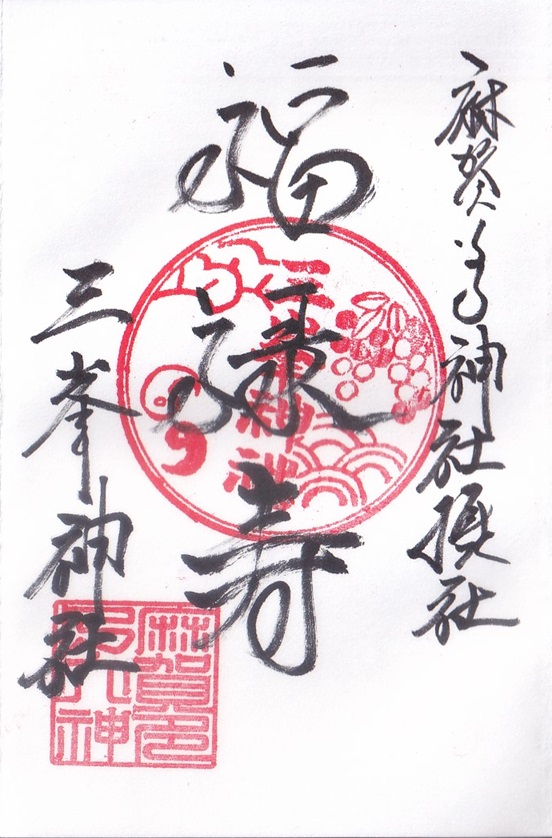 麻賀多神社摂社
福禄寿
三峯神社
三峯神社
麻賀
神